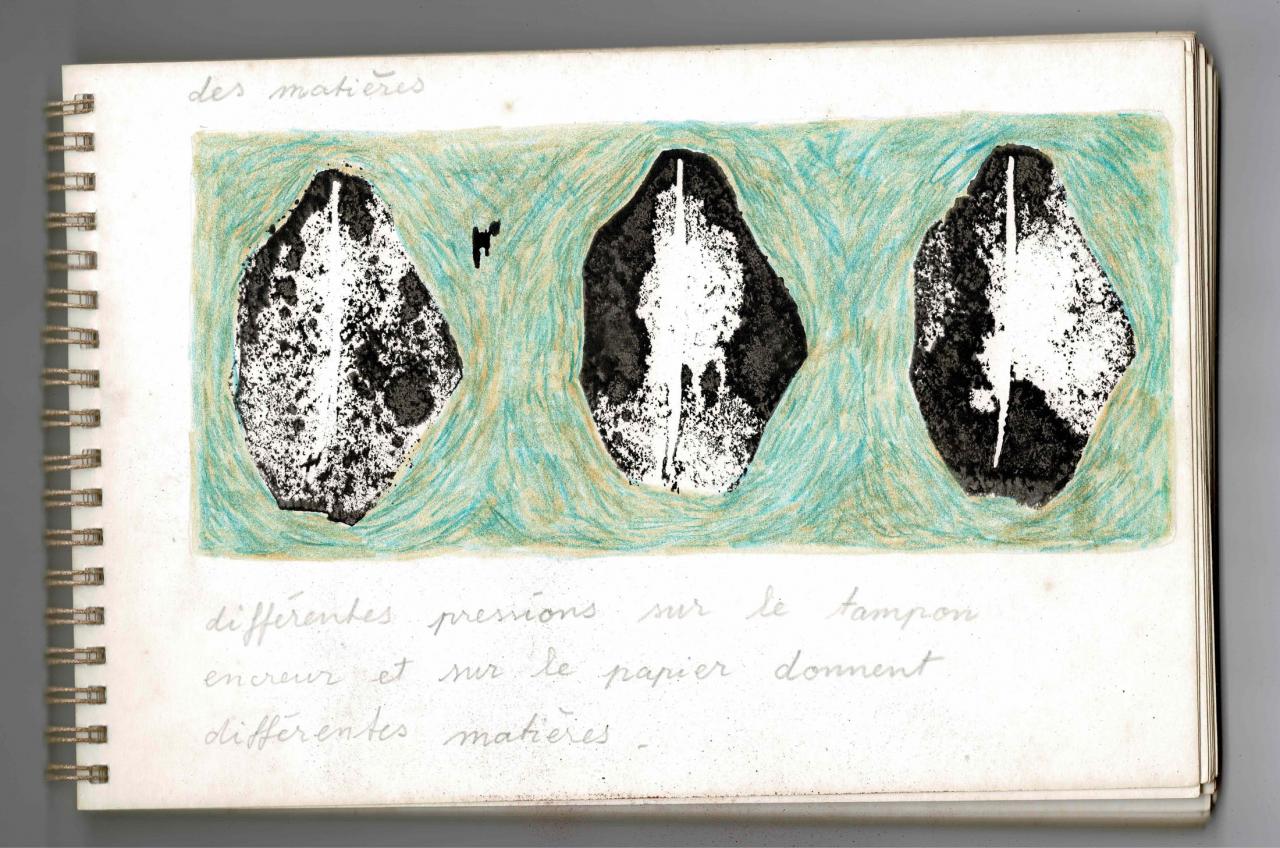 des matières
différentes pressions sur le tampon
encreur et sur le papier donnent
différentes matières.